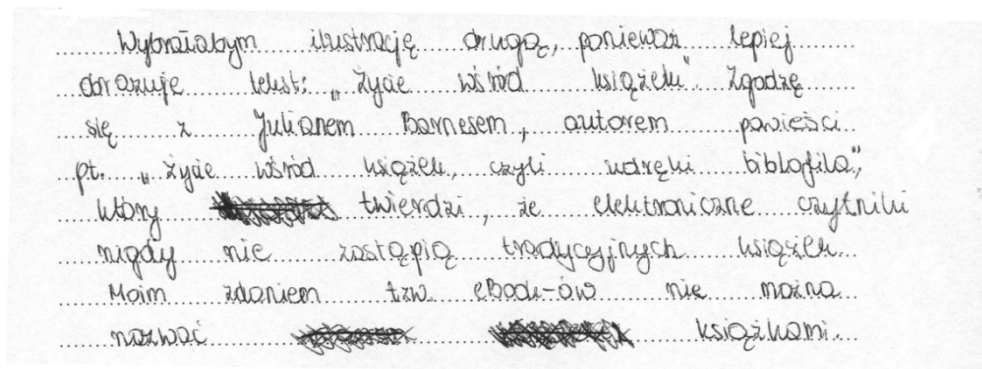 Wybrałabym ilustrację drugą, ponieważ lepiej
obrazuje tekst: „Życie wśród książek". Zgodzę
się z Julianem Barnesem, autorem powieści
pt. „Życie wśród książek, czyli udręki biblofila",
który twierdzi, że elektroniczne czytniki
nigdy nie zastąpią tradycyjnych książek.
Moim zdaniem tzw. eBook-ów nie można
nazwać książkami.